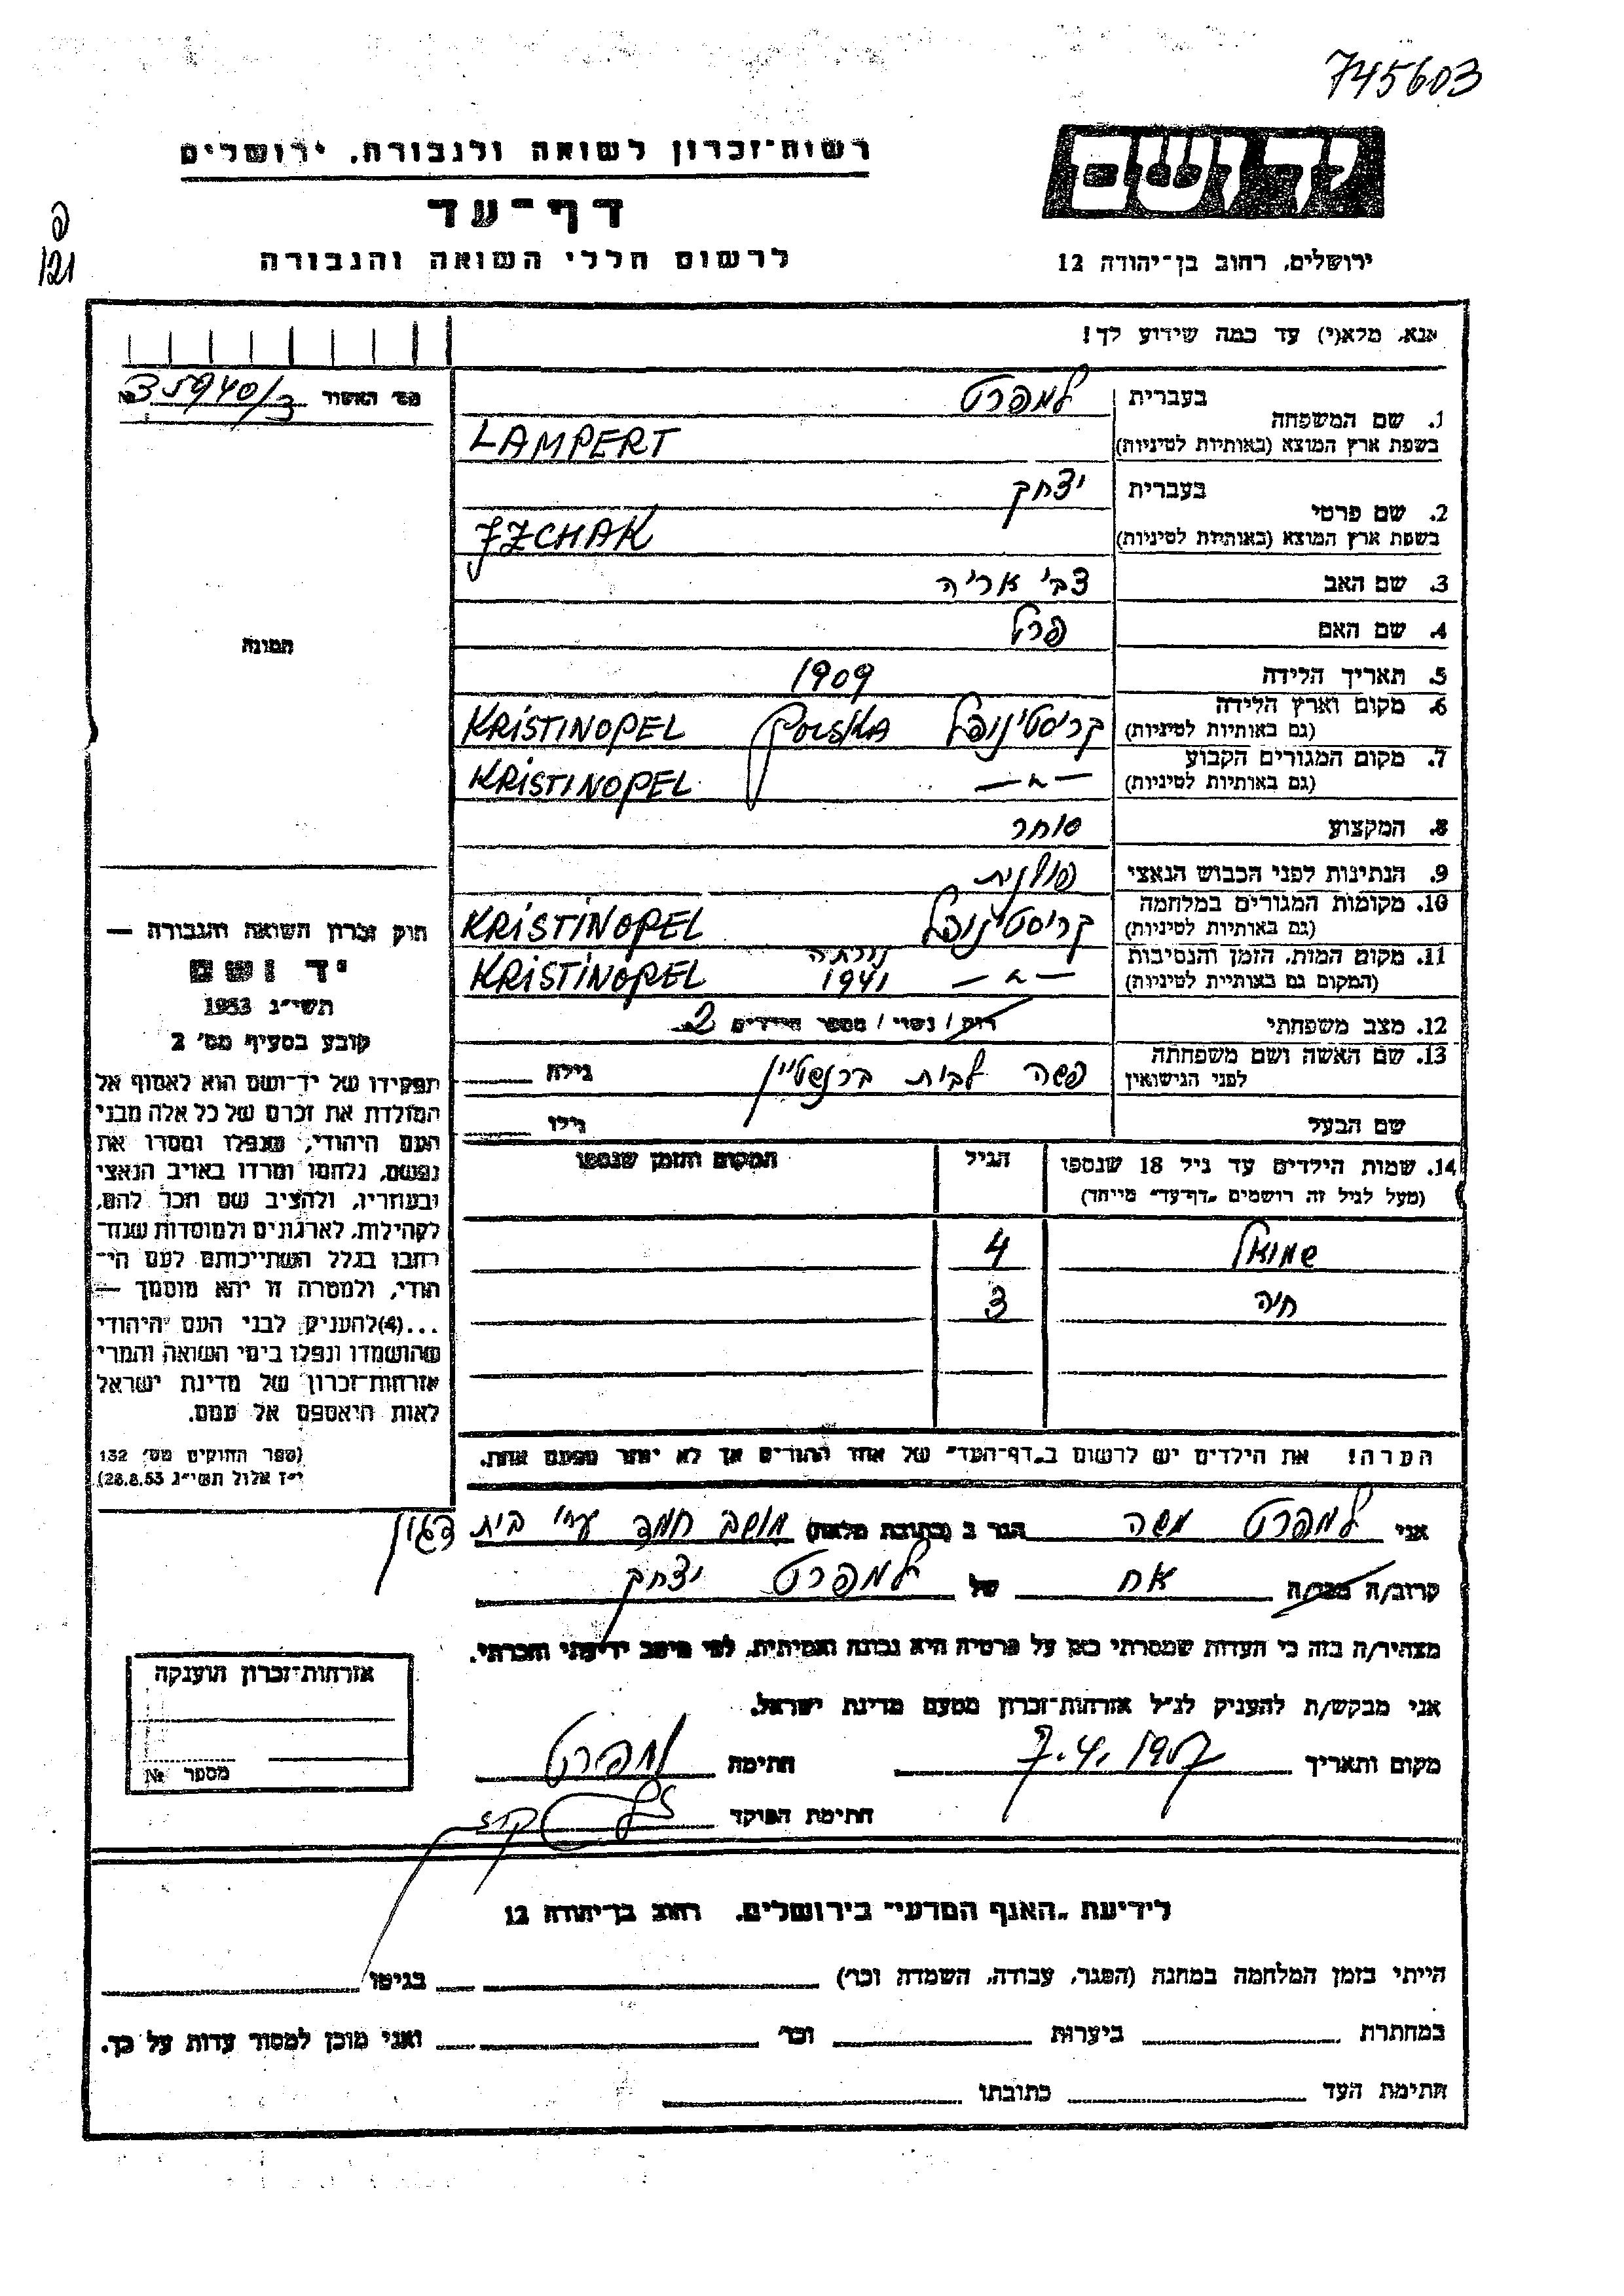 745603
רשות־זכרון לשואה ולגבורה, ירושלים
יד ושם
דף־עד
לרשום חללי השואה והגבורה
ירושלים, רחוב בן־יהודה 12
121
אנא, מלא(י) עד כמה שידוע לך!
מס׳ האשור № 35940/3
1. שם המשפחה
בעברית למפרט
בשפת ארץ המוצא (באותיות לטיניות) LAMPERT
2. שם פרטי
בעברית יצחק
בשפת ארץ המוצא (באותיות לטיניות) JZCHAK
3. שם האב צבי אריה
4. שם האם פרל
5. תאריך הלידה 1909
6. מקום וארץ הלידה קריסטינופל Polska KRISTINOPEL
(גם באותיות לטיניות)
7. מקום המגורים הקבוע — " — KRISTINOPEL
(גם באותיות לטיניות)
8. המקצוע סוחר
9. הנתינות לפני הכבוש הנאצי פולנית
10. מקומות המגורים במלחמה קריסטינופל KRISTINOPEL
(גם באותיות לטיניות)
11. מקום המות, הזמן והנסיבות — " — 1941 KRISTINOPEL
(המקום גם באותיות לטיניות)
12. מצב משפחתי רווק / נשוי / מספר הילדים 2
13. שם האשה ושם משפחתה פשה לבית ברנשטיין גילה
לפני הנישואין
שם הבעל גילו
14. שמות הילדים עד גיל 18 שנספו הגיל המקום והזמן שנספו
(מעל לגיל זה רושמים „דף־עד״ מיוחד)
שמואל 4
חיה 3
הערה! את הילדים יש לרשום ב„דף־העד״ של אחד ההורים אך לא יותר מפעם אחת.
תמונה
חוק זכרון השואה והגבורה —
יד ושם
תשי״ג 1953
קובע בסעיף מס׳ 2
תפקידו של יד־ושם הוא לאסוף אל
המולדת את זכרם של כל אלה מבני
העם היהודי, שנפלו ומסרו את
נפשם, נלחמו ומרדו באויב הנאצי
ובעוזריו, ולהציב שם וזכר להם,
לקהילות, לארגונים ולמוסדות שנח־
רבו בגלל השתייכותם לעם הי־
הודי, ולמטרה זו יהא מוסמך —
...(4)להעניק לבני העם היהודי
שהושמדו ונפלו בימי השואה והמרי
אזרחות־זכרון של מדינת ישראל
לאות היאספם אל עמם.
(ספר החוקים מס׳ 132
י״ז אלול תשי״ג 28.8.53)
אני למפרט משה הגר ב (כתובת מלאה) מושב חמד ע״י בית דגון
קרוב/ה מכר/ה אח של למפרט יצחק
מצהיר/ה בזה כי העדות שמסרתי כאן על פרטיה היא נכונה ואמיתית, לפי מיטב ידיעתי והכרתי.
אני מבקש/ת להעניק לנ״ל אזרחות־זכרון מטעם מדינת ישראל.
מקום ותאריך 7.4.1957 חתימה למפרט
חתימת הפוקד
אזרחות־זכרון הוענקה
מספר №
לידיעת „האגף המדעי״ בירושלים, רחוב בן־יהודה 12
הייתי בזמן המלחמה במחנה (הסגר, עבודה, השמדה וכו׳) בגיטו
במחתרת ביערות וכו׳ ואני מוכן למסור עדות על כך.
חתימת העד כתובתו